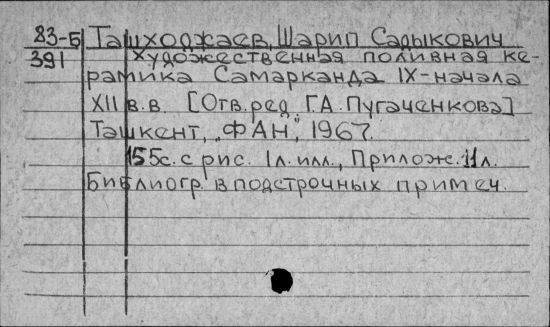 83-Б Ташходжаев, Шарип Садыкович
391 Художественная поливная ке-
рамика Самарканда IX-начала
XII в.в. [Отв.ред. Г.А.Пугаченкова]
Ташкент, "ФАН", 1967.
155с. с рис. 1л. илл., Прилож. 11л.
Библиогр. в подстрочных примеч.